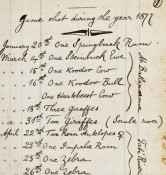 Game shot during the year 1877
January 20th One Springbuck Ram
March 14th One Steenbuck Ewe
" 15th One Koodoo Cow
" 16th One Koodoo Bull
One Hartebeest Cow
" 18th Three Giraffes
" 31st Two Giraffes (
April 22nd Two Roan Antelopes
" 23rd One Impala Ram
" 25th One Zebra
" 26th One Zebra